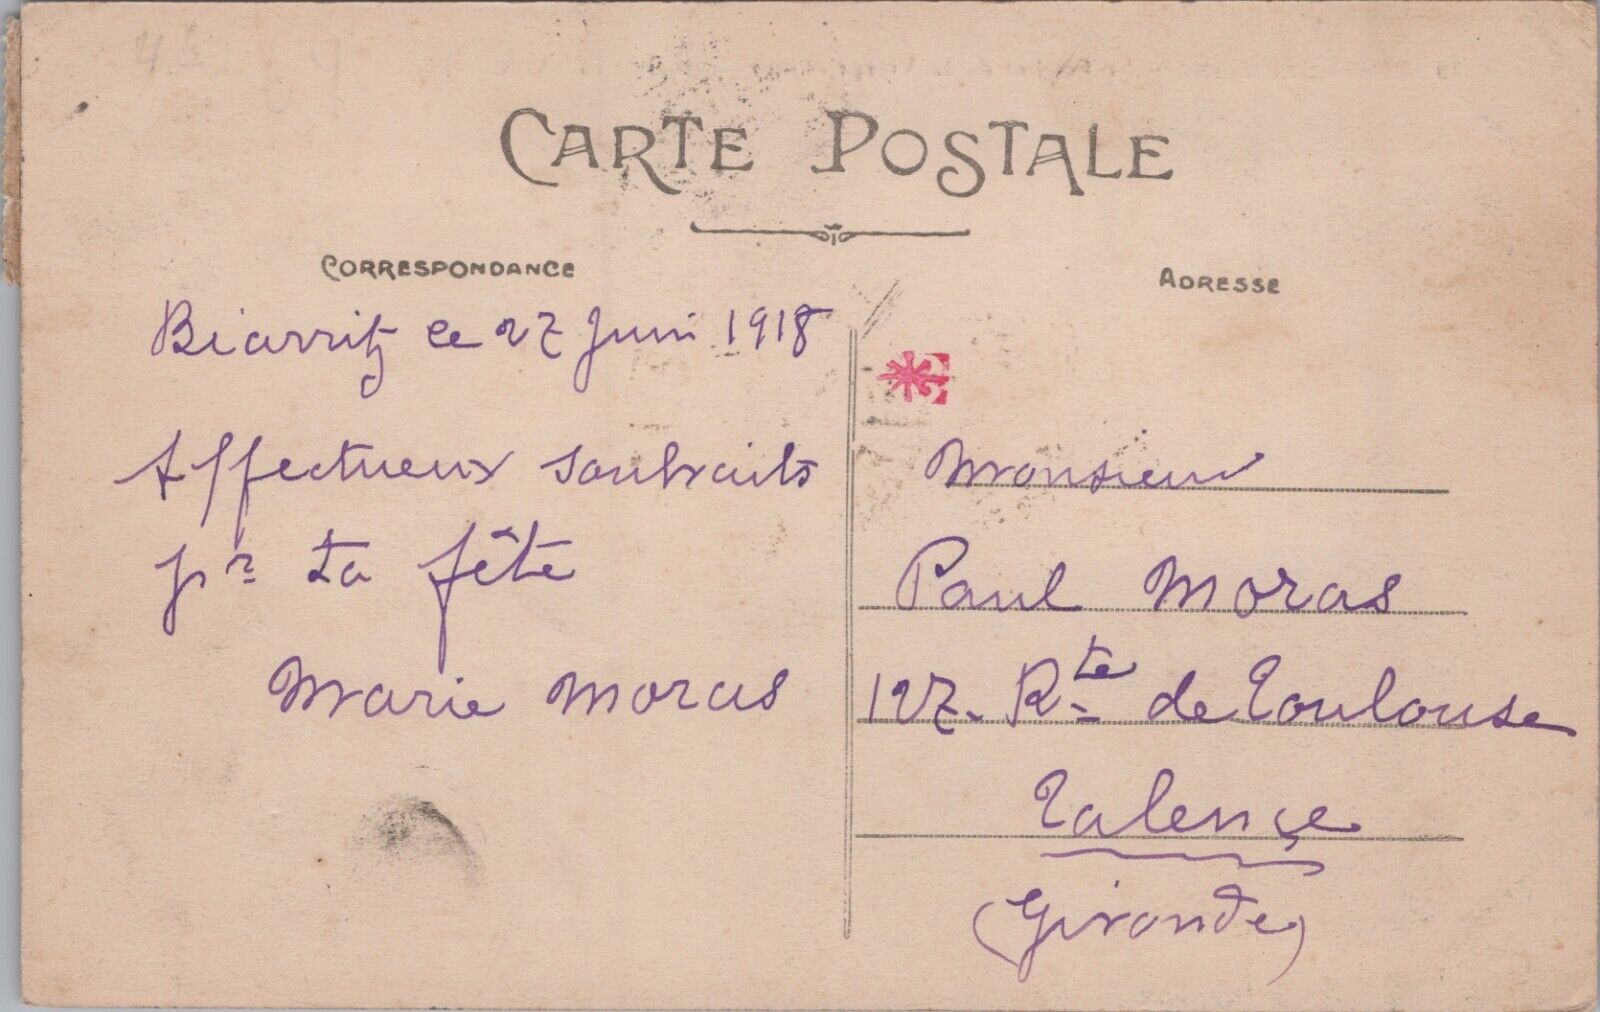 CARTE POSTALE
CORRESPONDANCE
ADRESSE
Biarritz le 27 Juin 1918
Affectueux souhaits
pr ta fête
Marie Moras
Monsieur
Paul Moras
127 - Rte de Toulouse
Talençe
(Gironde)